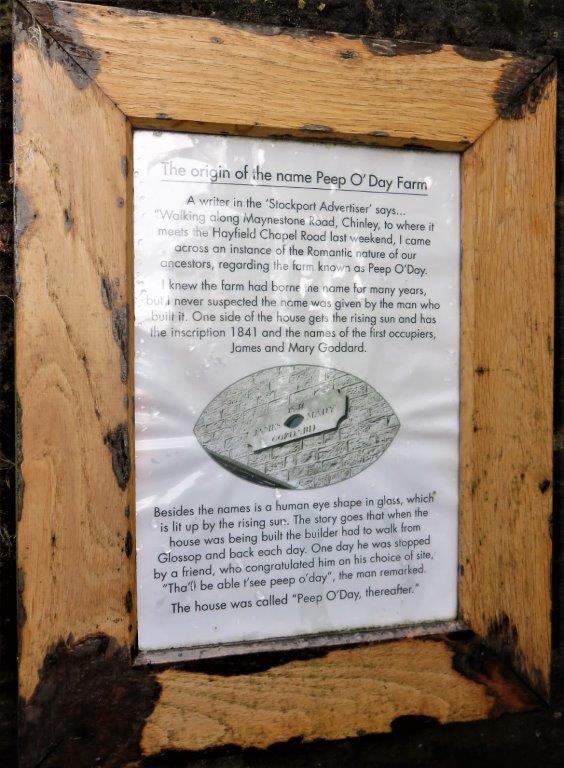 The origin of the name Peep O' Day Farm
A writer in the 'Stockport Advertiser' says...
"Walking along Maynestone Road, Chinley, to where it
meets the Hayfield Chapel Road last weekend, I came
across an instance of the Romantic nature of our
ancestors, regarding the farm known as Peep O'Day.
I knew the farm had borne the name for many years,
but I never suspected the name was given by the man who
built it. One side of the house gets the rising sun and has
the inscription 1841 and the names of the first occupiers,
James and Mary Goddard.
JAMES MARY
GODDARD
Besides the names is a human eye shape in glass, which
is lit up by the rising sun. The story goes that when the
house was being built the builder had to walk from
Glossop and back each day. One day he was stopped
by a friend, who congratulated him on his choice of site,
"Tha'll be able t'see peep o'day", the man remarked.
The house was called "Peep O'Day, thereafter."